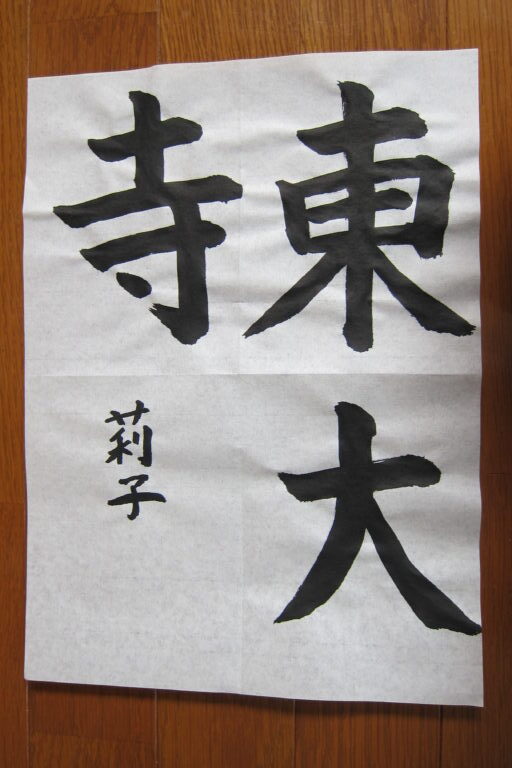 東大
寺
莉子